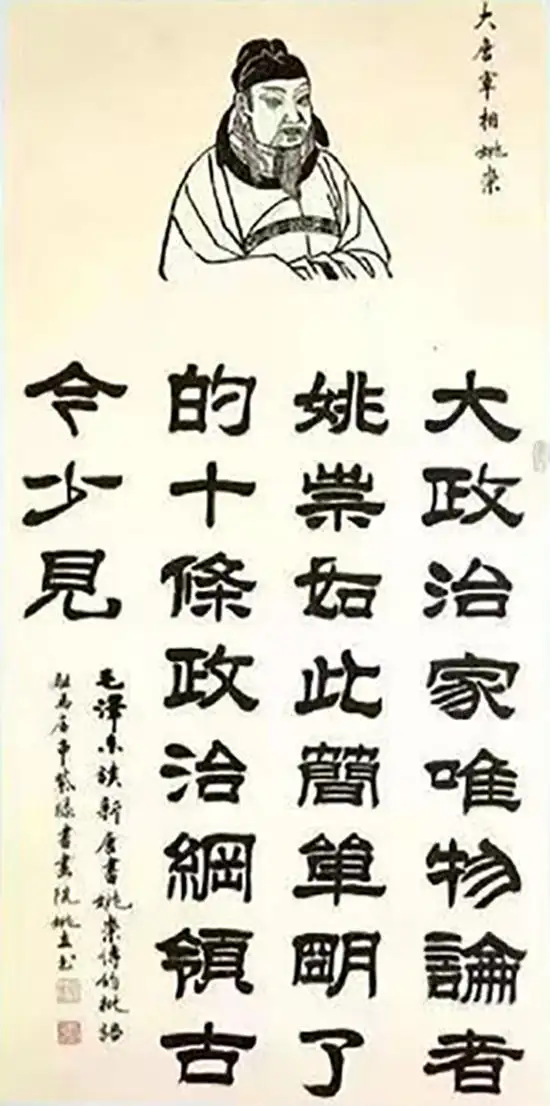 大唐宰相姚崇
大政治家唯物論者
姚崇如此簡單明了
的十條政治綱領古
今少見
毛澤东读新唐書姚崇傳的批語
駐馬店市書畫院姚书